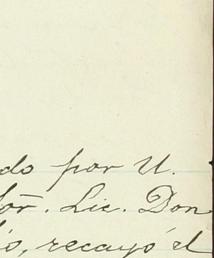 do por U.
ör. Lic. Don
o, recayó el